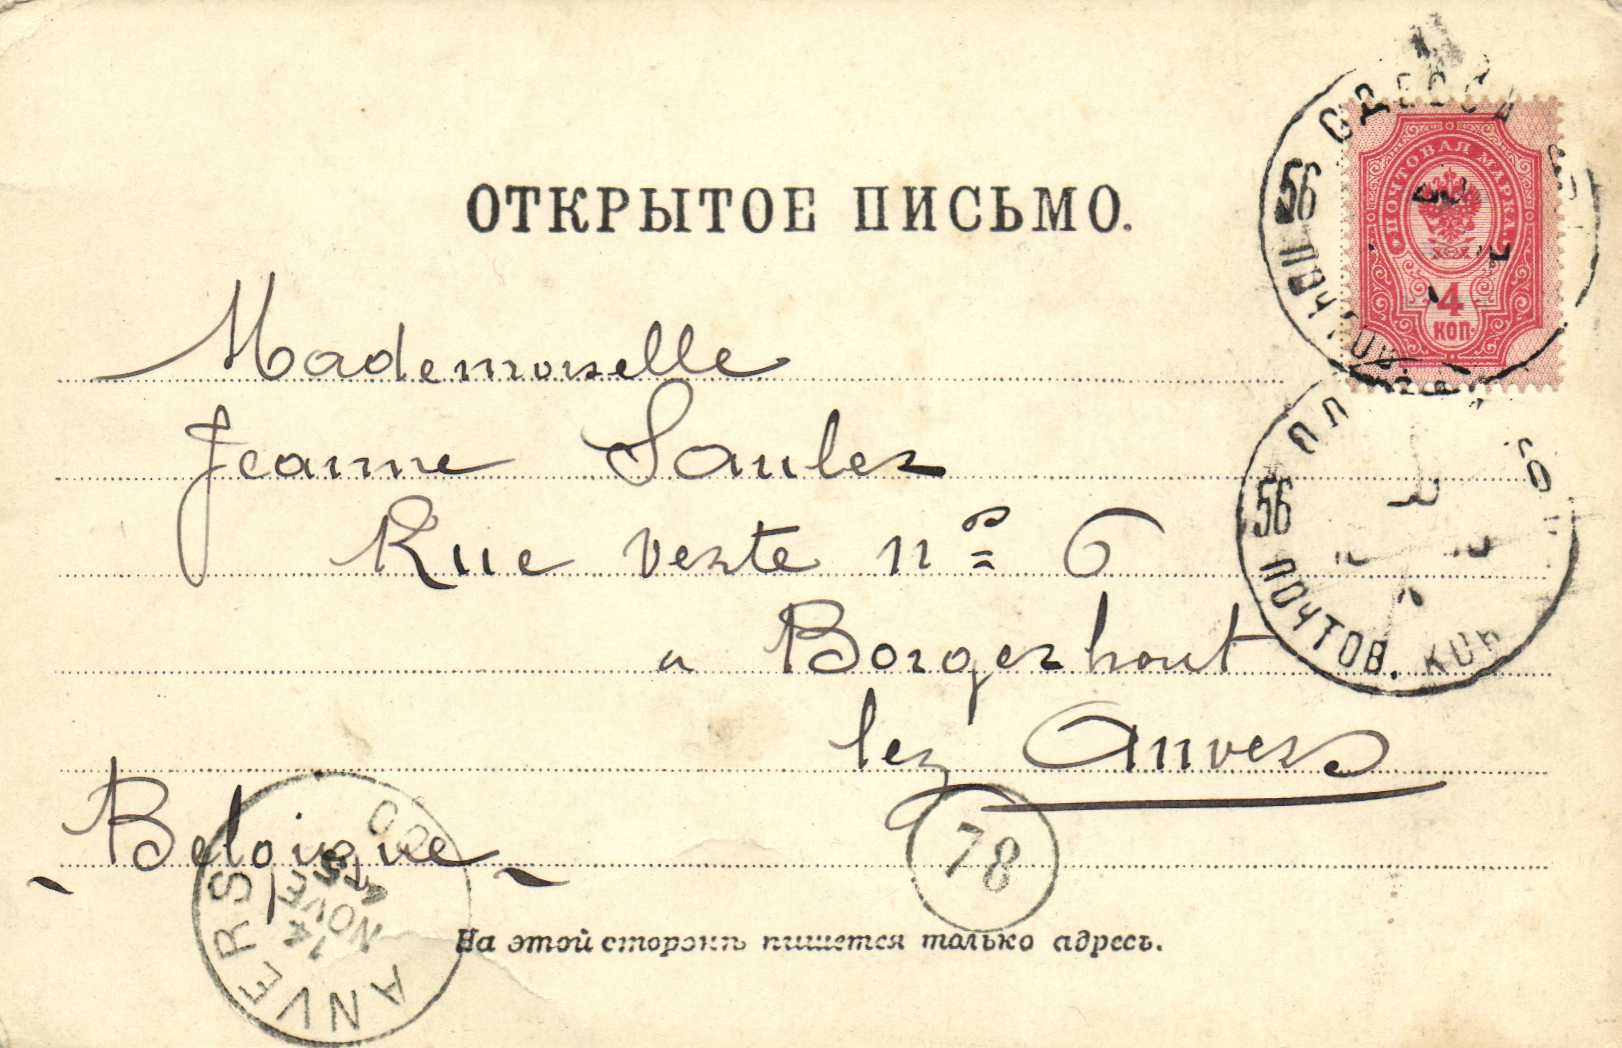 ОТКРЫТОЕ ПИСЬМО.
ПОЧТОВАЯ МАРКА
4
КОП.
ОДЕССА
56
ПОЧТОВ.
56
ПОЧТОВ. КОН
Mademoiselle
Jeanne Saulez
Rue verte nº 6
a Borgerhout
lez Anvers
Belgique
78
ANVERS
14
NOVE
На этой сторонѣ пишется только адресъ.